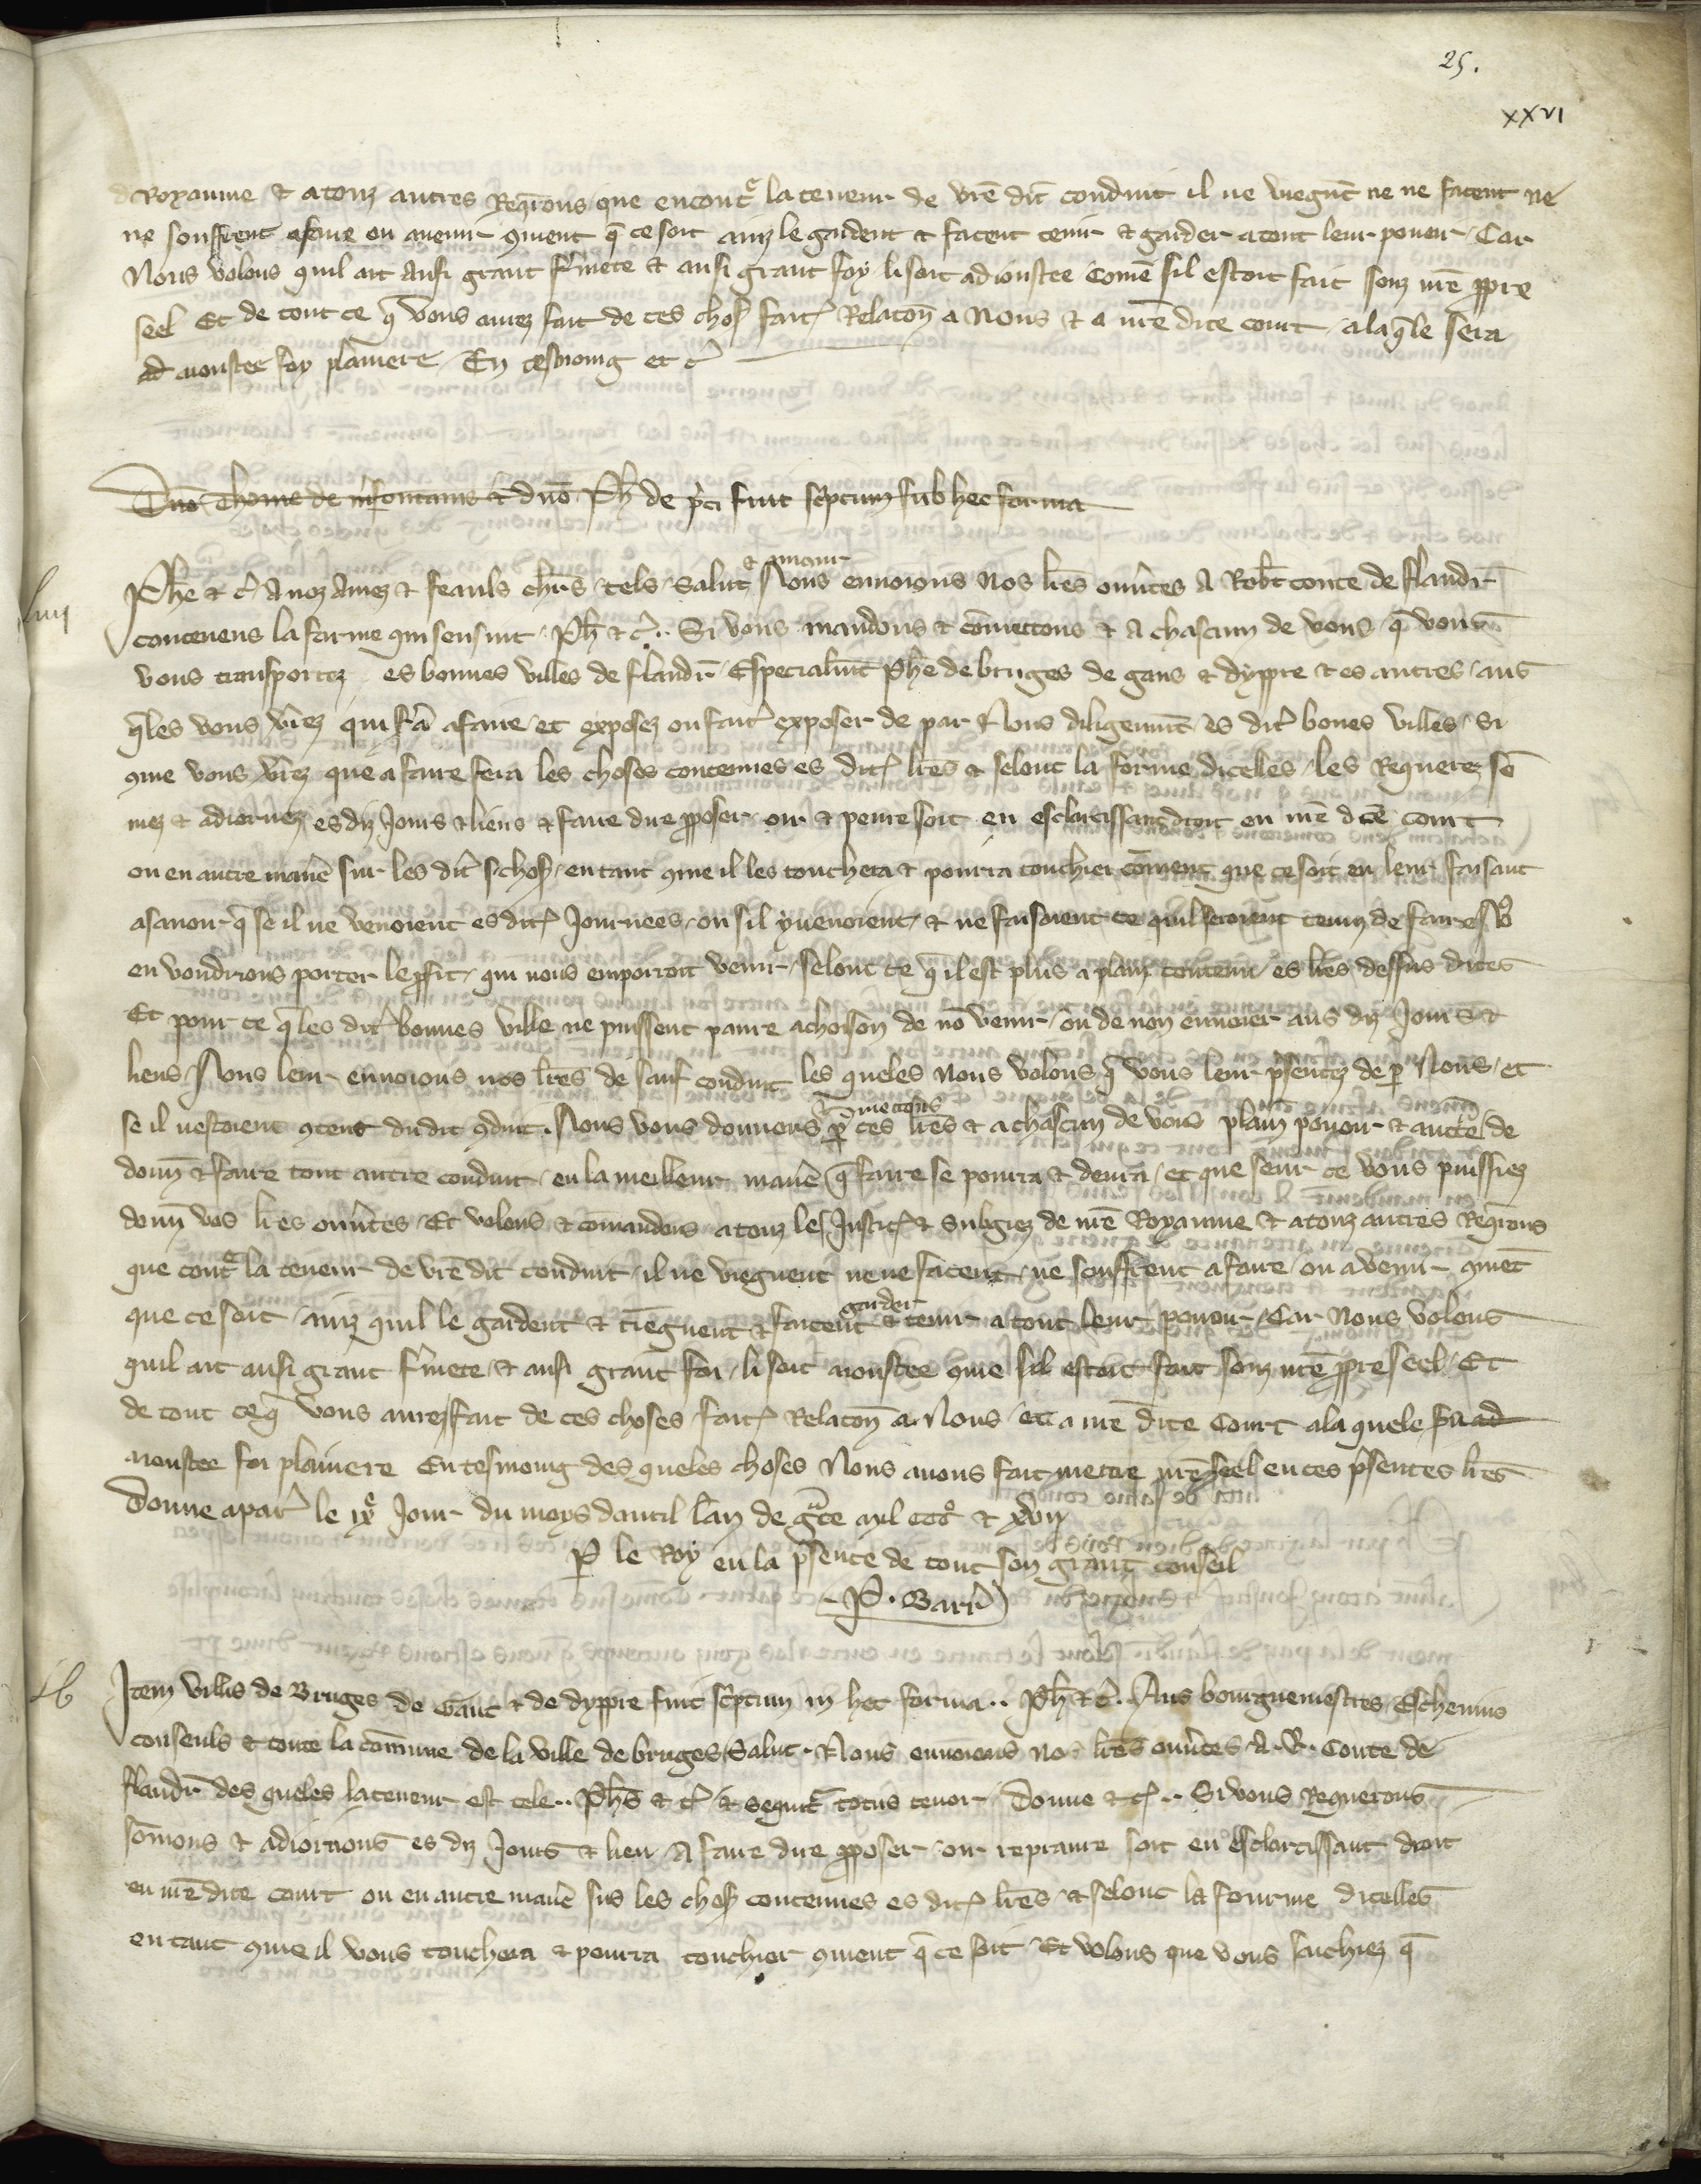 25.
xxvi
Royaume & a touz autres Reqrons que encontre la teneur de vre dit conduit il ne viegnent ne ne facent ne
ne souffrent a faire ou avenir 9ment q ce soit ainz le gardent & facent tenir & garder a tout leur povoir / Car
Nous volons quil ait ausi grant fmete & ausi grant foy li soit adioustee come sil estoit fait souz nre ppre
seel Et de tout ce q vous aurez fait de ces chos fait Relacon a Nous & a nre dite court / a la qle sera
ad aioustee foy plainiere / En tesmoing et c
Dno Thome de morfontanis & dno Ph de pci fuit sciptum sub hec forma
liiii
Phe & c A noz amez & feauls chrs tels Salut & amour Nous envoions nos lres ouvtes A Robt conte de flandr
contenens la forme qui sensuit . Ph & c .. Si vous mandons & comettons & a chascun de vous q vous
vous transportez es bonnes villes de flandr / Especialmt de bruges de gans & dyppre & es autres / aus
qles vous vrrez qui sa a faire / et exposez ou fait exposer de par Nous diligenmt es dit bones villes / Si
9me vous vrrez que a faire sera les choses contenues es dit lres & selont la forme dicelles / les Requerez som
mez & adiornez es diz Jours & lieus & faire dire pposer oir & penre soit en esclarcissant droit en nre dite court
ou en autre manie sur les dit chos / en tant 9me il les touchera & pourra touchier coment que ce soit en leur faisant
asavoir q se il ne venoient es dit Journees / ou sil y venoient / & ne faisoient ce quil seroient tenuz de faire No
en voudrions porter le pfit / qui nous en porroit venir / selont ce q il est plus a plain contenu es lres dessus dites
Et pour ce q les dit bonnes ville ne puissent panre achoison de no venir / ou de non envoier aus diz Jours &
lieus Nous leur envoions nos lres de sauf conduit les queles Nous volons q vous leur psentez de p Nous / et
se il nestoient 9tent dudit 9duit . Nous vous donnons & mectons p ces lres & a chascun de vous plain povoir & aucte de
donn & faire tout autre conduit / en la meilleur manie q faire se pourra & devra / et que seur ce vous puissiez
donn vos lres ouvtes / Et volons & comandons a touz les Justic & Subgiez de nre Royaume & a touz autres Reqrons
que contre la teneur de vre dit conduit / il ne viegnent ne ne facent / ne souffrent a faire / ou avenir 9ment
que ce soit / ainz quil le gardent & tiegnent & facent garder & tenir a tout leur povoir / Car Nous volons
quil ait ausi grant fmete & ausi grant foi / li soit aioustee 9me sil estoit fait souz nre ppre seel / Et
de tout ce q vous aurez fait de ces choses / fait Relacon a Nous / et a nre dite Court a la quele sera ad
aioustee foi plainiere En tesmoing des queles choses Nous avons fait metre nre seel en ces psentes lres
Donne a par le ix Jour du moys davril lan de gce mil ccc & xvii
P le Roy en la psence de tout son grant conseil
P . Barr
lv
Item villis de Bruges de Gant & de dyppre fuit sciptum in hec forma .. Ph & c .. Aus bourguemestres / Eschevins
conseuls & toute la comune de la ville de bruges / Salut . Nous envoions nos lres ouvtes . A . R . Conte de
flandr des queles la teneur est tele .. Phs & c & sequit totus tenor / Donne & c .. Si vous Requerons
somons & adiornons es diz Jours & lieu A faire dire pposer / oir re pranre soit en esclarcissant droit
en nre dite court ou en autre manie sus les chos contenues es dit lres & selont la fourme dicelles
en tant 9me il vous touchera & pourra touchier 9ment q ce soit / Et volons que vous sachiez q